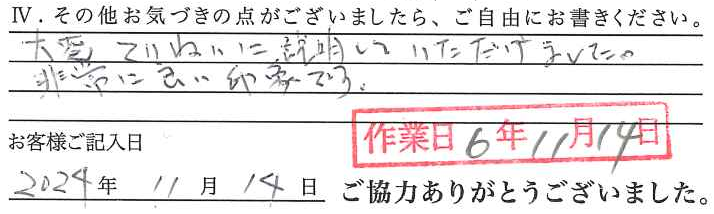 Ⅳ．その他お気づきの点がございましたら、ご自由にお書きください。
大変ていねいに説明していただけました。
非常に良い印象です。
お客様ご記入日
作業日 6年11月14日
2024年 11月 14日 ご協力ありがとうございました。